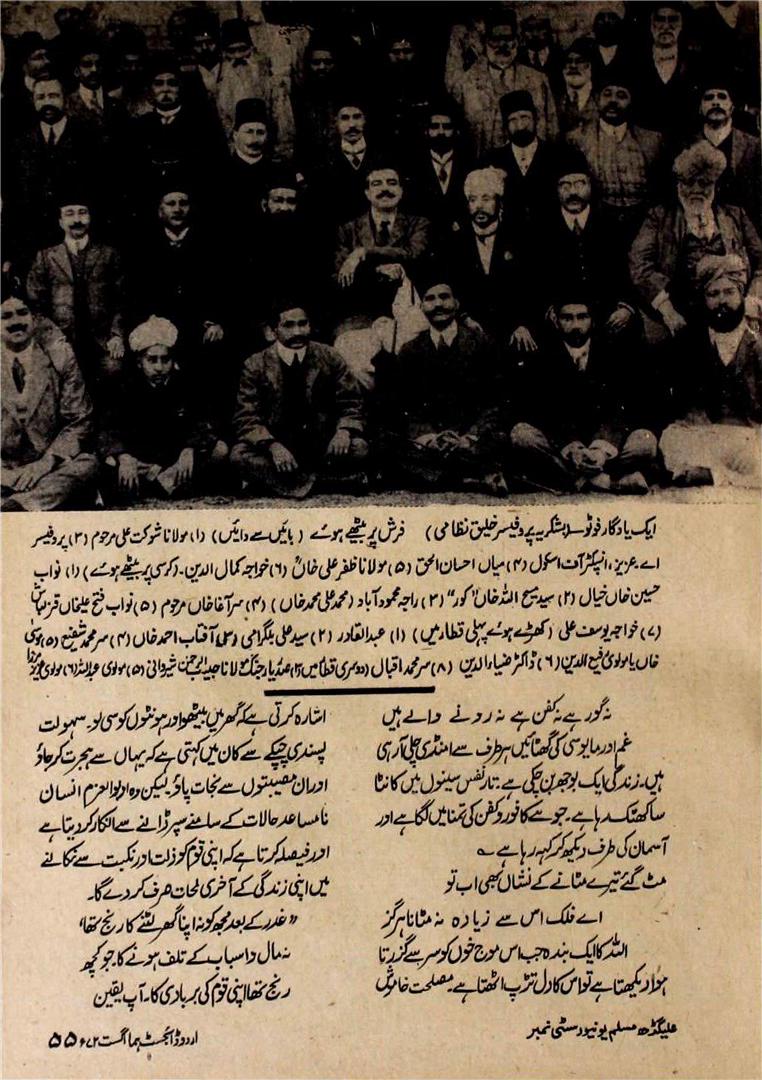 ایک یادگار فوٹو۔ (بشکریہ پروفیسر خلیق نظامی) فرش پر بیٹھے ہوئے (بائیں سے دائیں) (۱) مولانا شوکت علی مرحوم (۳) پروفیسر
اے عزیز، انسپکٹر آف اسکول (۴) میاں احسان الحق (۵) مولانا ظفر علی خاں (۶) خواجہ کمال الدین۔ (کرسی پر بیٹھے ہوئے) (۱) نواب
حسین خاں خیال (۲) سید مسیح اللہ خاں "کور" (۳) راجہ محمود آباد (محمد علی محمد خاں) (۴) سر آغا خاں مرحوم (۵) نواب فتح علیخاں قزلباش
(۷) خواجہ یوسف علی (کھڑے ہوئے پہلی قطار میں) (۱) عبدالقادر (۲) سید علی بلگرامی (۳) آفتاب احمد خاں (۴) سر محمد شفیع (۵) موسیٰ
خاں یا مولوی رفیع الدین (۶) ڈاکٹر ضیاء الدین (۸) سر محمد اقبال (دوسری قطار میں) (۲) صدر یار جنگ مولانا حبیب الرحمن شیروانی (۵) مولوی عبداللہ (۶) مولوی عزیز مرزا
نہ گور ہے نہ کفن ہے نہ رونے والے ہیں
غم اور مایوسی کی گھٹائیں ہر طرف سے امنڈی چلی آ رہی
ہیں۔ زندگی ایک بوجھ بن چکی ہے۔ تار نفس سینوں میں کانٹا
سا کھٹک رہا ہے۔ جو ہے کافور و کفن کی تمنا میں لگا ہے اور
آسمان کی طرف دیکھ کر کہہ رہا ہے ؎
مٹ گئے تیرے مٹانے کے نشاں بھی اب تو
اے فلک اس سے زیادہ نہ مٹانا ہرگز
اللہ کا ایک بندہ جب اس موج خوں کو سر سے گزرتا
ہوا دیکھتا ہے تو اس کا دل تڑپ اٹھتا ہے۔ مصلحت خاموش
اشارہ کرتی ہے کہ گھر میں بیٹھو اور ہونٹوں کو سی لو۔ سہولت
پسندی چپکے سے کان میں کہتی ہے کہ یہاں سے ہجرت کر جاؤ
اور ان مصیبتوں سے نجات پاؤ۔ لیکن وہ اولوالعزم انسان
نامساعد حالات کے سامنے سپر ڈالنے سے انکار کر دیتا ہے
اور فیصلہ کرتا ہے کہ اپنی قوم کو ذلت اور نکبت سے نکالنے
میں اپنی زندگی کے آخری لمحات صرف کر دے گا۔
"غدر کے بعد مجھ کو نہ اپنا گھر لٹنے کا رنج تھا
نہ مال و اسباب کے تلف ہونے کا۔ جو کچھ
رنج تھا اپنی قوم کی بربادی کا۔ آپ یقین
علیگڈھ مسلم یونیورسٹی نمبر
اردو ڈائجسٹ ہما اگست ۷۲ء ۵۵